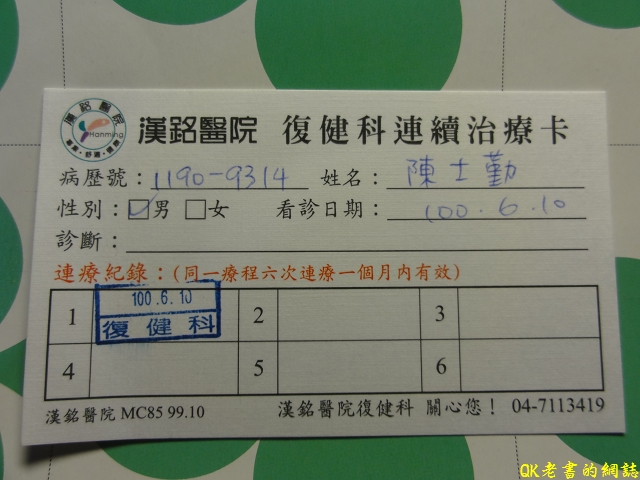 漢銘醫院
Hanming
漢銘醫院 復健科連續治療卡
病歷號：1190-9314 姓名：陳士勤
性別：☑男 □女 看診日期：100.6.10
診斷：
連療紀錄：(同一療程六次連療一個月內有效)
1 100.6.10 2 3
復健科
4 5 6
漢銘醫院 MC85 99.10 漢銘醫院復健科 關心您！ 04-7113419
QK老書的網誌